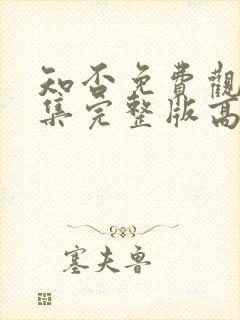 知否免費觀
集完整版高
塞夫魯